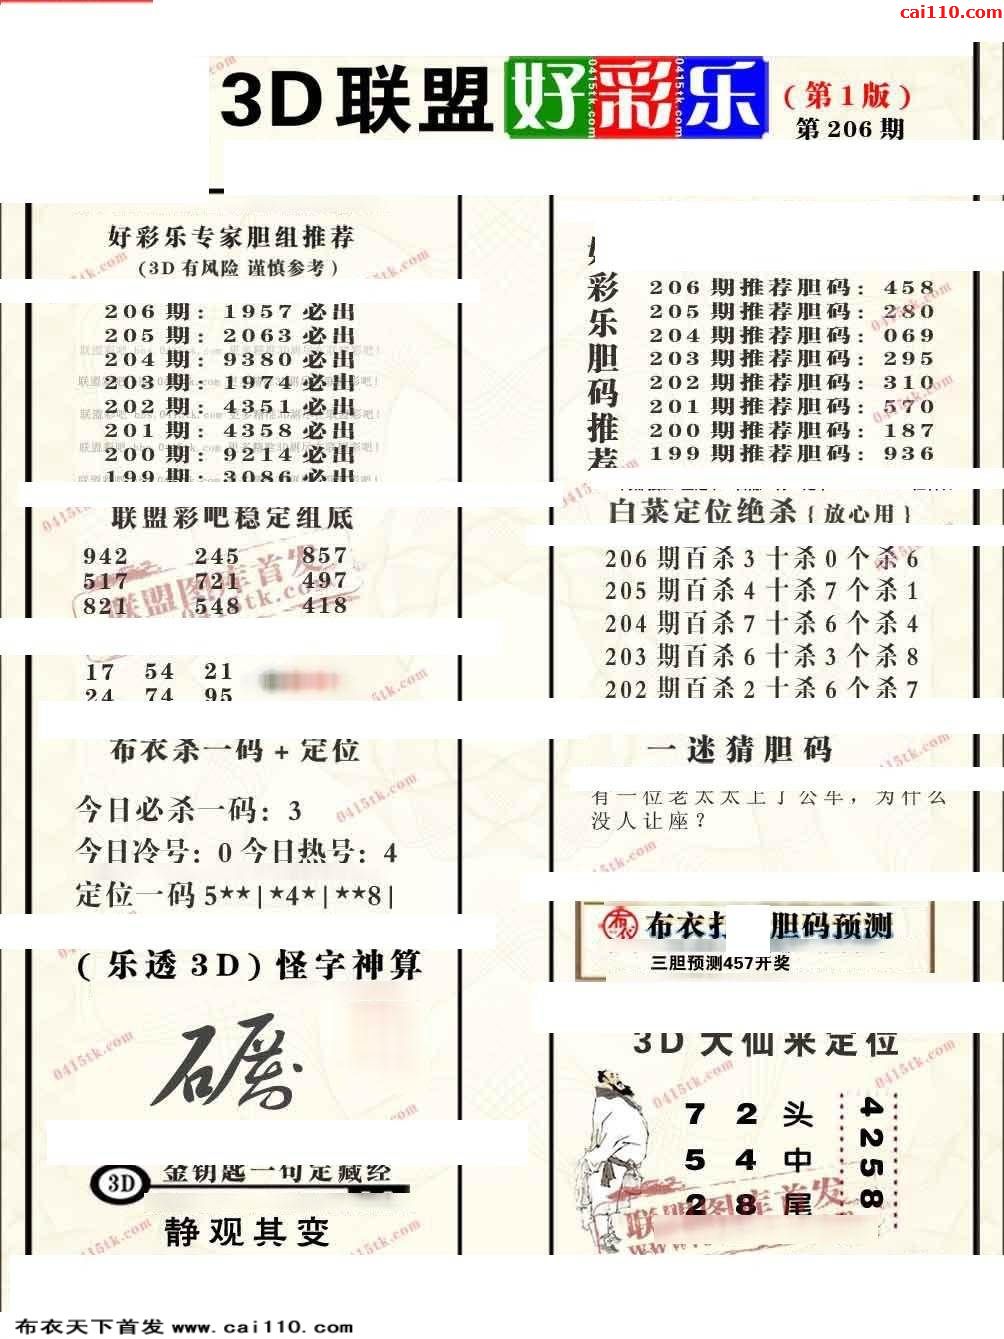 cai110.com
3D联盟好彩乐
(第1版)
第206期
好彩乐专家胆组推荐
(3D有风险 谨慎参考)
206期: 1957必出
205期: 2063必出
204期: 9380必出
203期: 1974必出
202期: 4351必出
201期: 4358必出
200期: 9214必出
199期: 3086必出
联盟彩吧稳定组底
942 245 857
517 721 497
821 548 418
联盟图库首发
17 54 21
24 74 95
布衣杀一码+定位
今日必杀一码: 3
今日冷号: 0 今日热号: 4
定位一码 5**|*4*|**8|
(乐透3D)怪字神算
3D
金钥匙一句定藏经
静观其变
彩乐胆码推荐
206期推荐胆码: 458
205期推荐胆码: 280
204期推荐胆码: 069
203期推荐胆码: 295
202期推荐胆码: 310
201期推荐胆码: 570
200期推荐胆码: 187
199期推荐胆码: 936
白菜定位绝杀{放心用}
206期百杀3十杀0个杀6
205期百杀4十杀7个杀1
204期百杀7十杀6个杀4
203期百杀6十杀3个杀8
202期百杀2十杀6个杀7
一迷猜胆码
有一位老太太上了公车，为什么
没人让座？
布衣 胆码预测
三胆预测457开奖
3D大仙来定位
7 2 头
5 4 中
2 8 尾
4258
联盟图库首发
0415tk.com
布衣天下首发 www.cai110.com